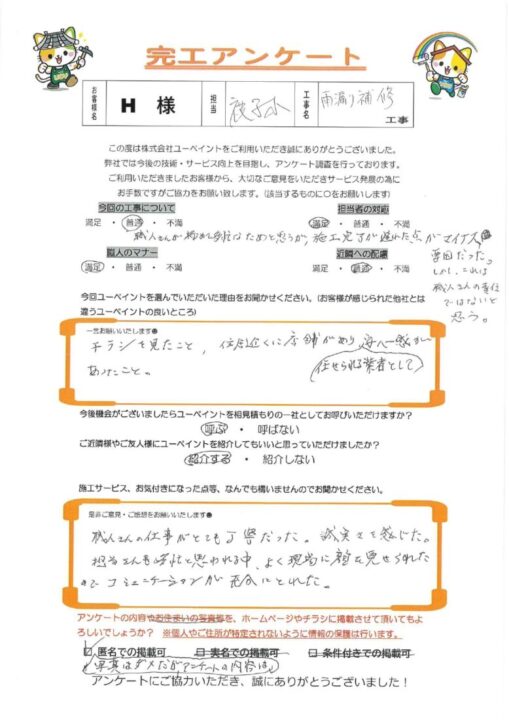 完工アンケート
お客様名 H 様 担当 工事名 雨漏り補修 工事
この度は株式会社ユーペイントをご利用いただき誠にありがとうございました。
弊社では今後の技術・サービス向上を目指し、アンケート調査を行っております。
ご利用いただきましたお客様から、大切なご意見をいただきサービス発展の為に
お手数ですがご協力をお願い致します。(該当するものに○をお願いします)
今回の工事について 担当者の対応
満足 ・ 普通 ・ 不満 満足 ・ 普通 ・ 不満
職人さんが のためと思うが、施工完了が遅れた点がマイナス
要因だった。
しかし、これは
職人さんの責任
ではないと
思う。
職人のマナー 近隣への配慮
満足 ・ 普通 ・ 不満 満足 ・ 普通 ・ 不満
今回ユーペイントを選んでいただいた理由をお聞かせください。(お客様が感じられた他社とは
違うユーペイントの良いところ)
一言お願いいたします●
チラシを見たこと、住居近くに店舗があり 安心感が
あったこと。 任せられる業者として
今後機会がございましたらユーペイントを相見積もりの一社としてお呼びいただけますか?
呼ぶ ・ 呼ばない
ご近隣様やご友人様にユーペイントを紹介してもいいと思っていただけましたか?
紹介する ・ 紹介しない
施工サービス、お気付きになった点等、なんでも構いませんのでお聞かせください。
是非ご意見・ご感想をお願いいたします●
職人さんの仕事がとても丁寧だった。誠実さを感じた。
担当さんも多忙と思われる中、よく現場に顔を見せられた
のでコミュニケーションが充分にとれた。
アンケートの内容やお住まいの写真を、ホームページやチラシに掲載させて頂いてもよ
ろしいでしょうか? ※個人やご住所が特定されないように情報の保護は行います。
匿名での掲載可 実名での掲載可 条件付きでの掲載可
写真はダメだがアンケートの内容は
アンケートにご協力いただき、誠にありがとうございました!